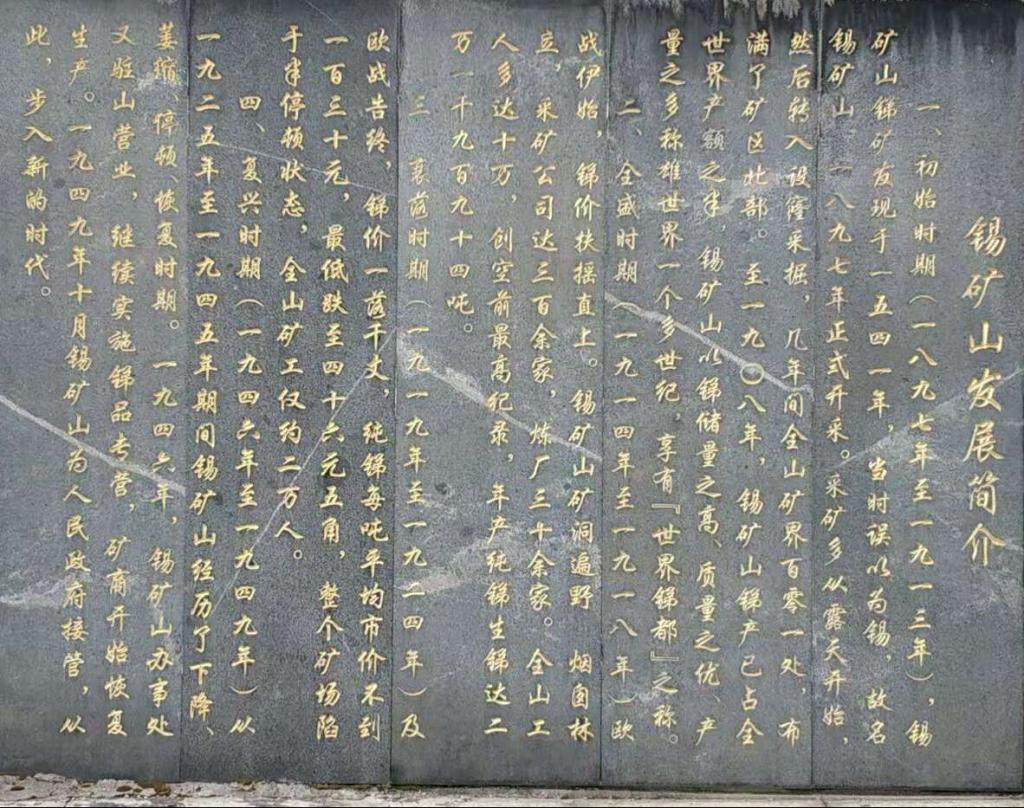 锡矿山发展简介
一、初始时期（一八九七年至一九一三年），锡
矿山锑矿发现于一五四一年，当时误以为锡，故名
锡矿山。一八九七年正式开采。采矿多从露天开始，
然后转入设窿采掘，几年间全山矿界百零一处，布
满了矿区北部。至一九〇八年，锡矿山锑产已占全
世界产额之半，锡矿山以锑储量之高、质量之优、产
量之多称雄世界一个多世纪，享有『世界锑都』之称。
二、全盛时期（一九一四年至一九一八年）欧
战伊始，锑价扶摇直上。锡矿山矿洞遍野 烟囱林
立，采矿公司达三百余家，炼厂三十余家。全山工
人多达十万，创空前最高纪录，年产纯锑生锑达二
万一千九百九十四吨。
三 衰落时期（一九一九年至一九二四年）及
欧战告终，锑价一落千丈，纯锑每吨平均市价不到
一百三十元，最低跌至四十六元五角，整个矿场陷
于半停顿状态，全山矿工仅约二万人。
四、复兴时期（一九四六年至一九四九年）从
一九二五年至一九四五年期间锡矿山经历了下降、
萎缩、停顿、恢复时期。一九四六年，锡矿山办事处
又驻山营业，继续实施锑品专营，矿商开始恢复
生产。一九四九年十月锡矿山为人民政府接管，从
此，步入新的时代。